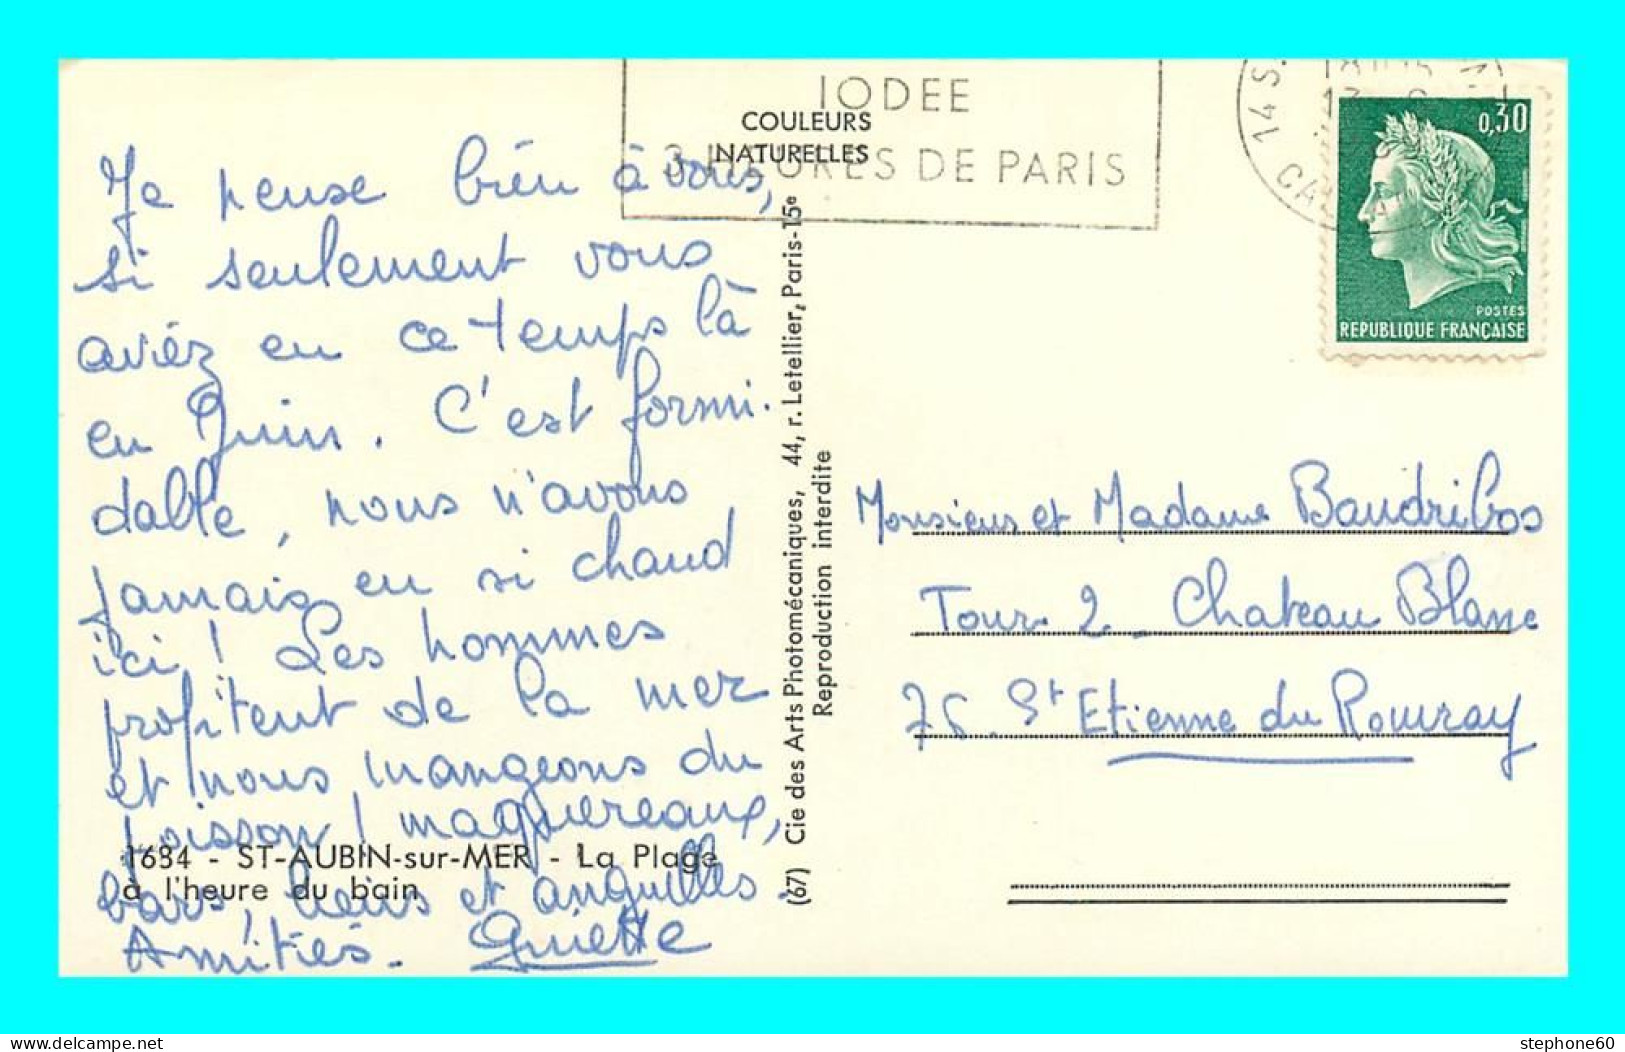 IODEE
3 HEURES DE PARIS
14 S.
CALVADOS
0,30
POSTES
REPUBLIQUE FRANÇAISE
COULEURS
NATURELLES
Je pense bien à vous,
si seulement vous
aviez eu ce temps là
en Juin. C'est formi.
dable, nous n'avons
jamais eu si chaud
ici! Les hommes
profitent de la mer
et nous mangeons du
poisson! maquereaux,
bars, lieus et anguilles.
Amitiés. Guiette
1684 - ST-AUBIN-sur-MER - La Plage
à l'heure du bain
(67) Cie des Arts Photomécaniques, 44, r. Letellier, Paris-15e
Reproduction interdite
Monsieur et Madame Baudribos
Tour 2 - Chateau Blanc
76. St Etienne du Rouvray
stephone60